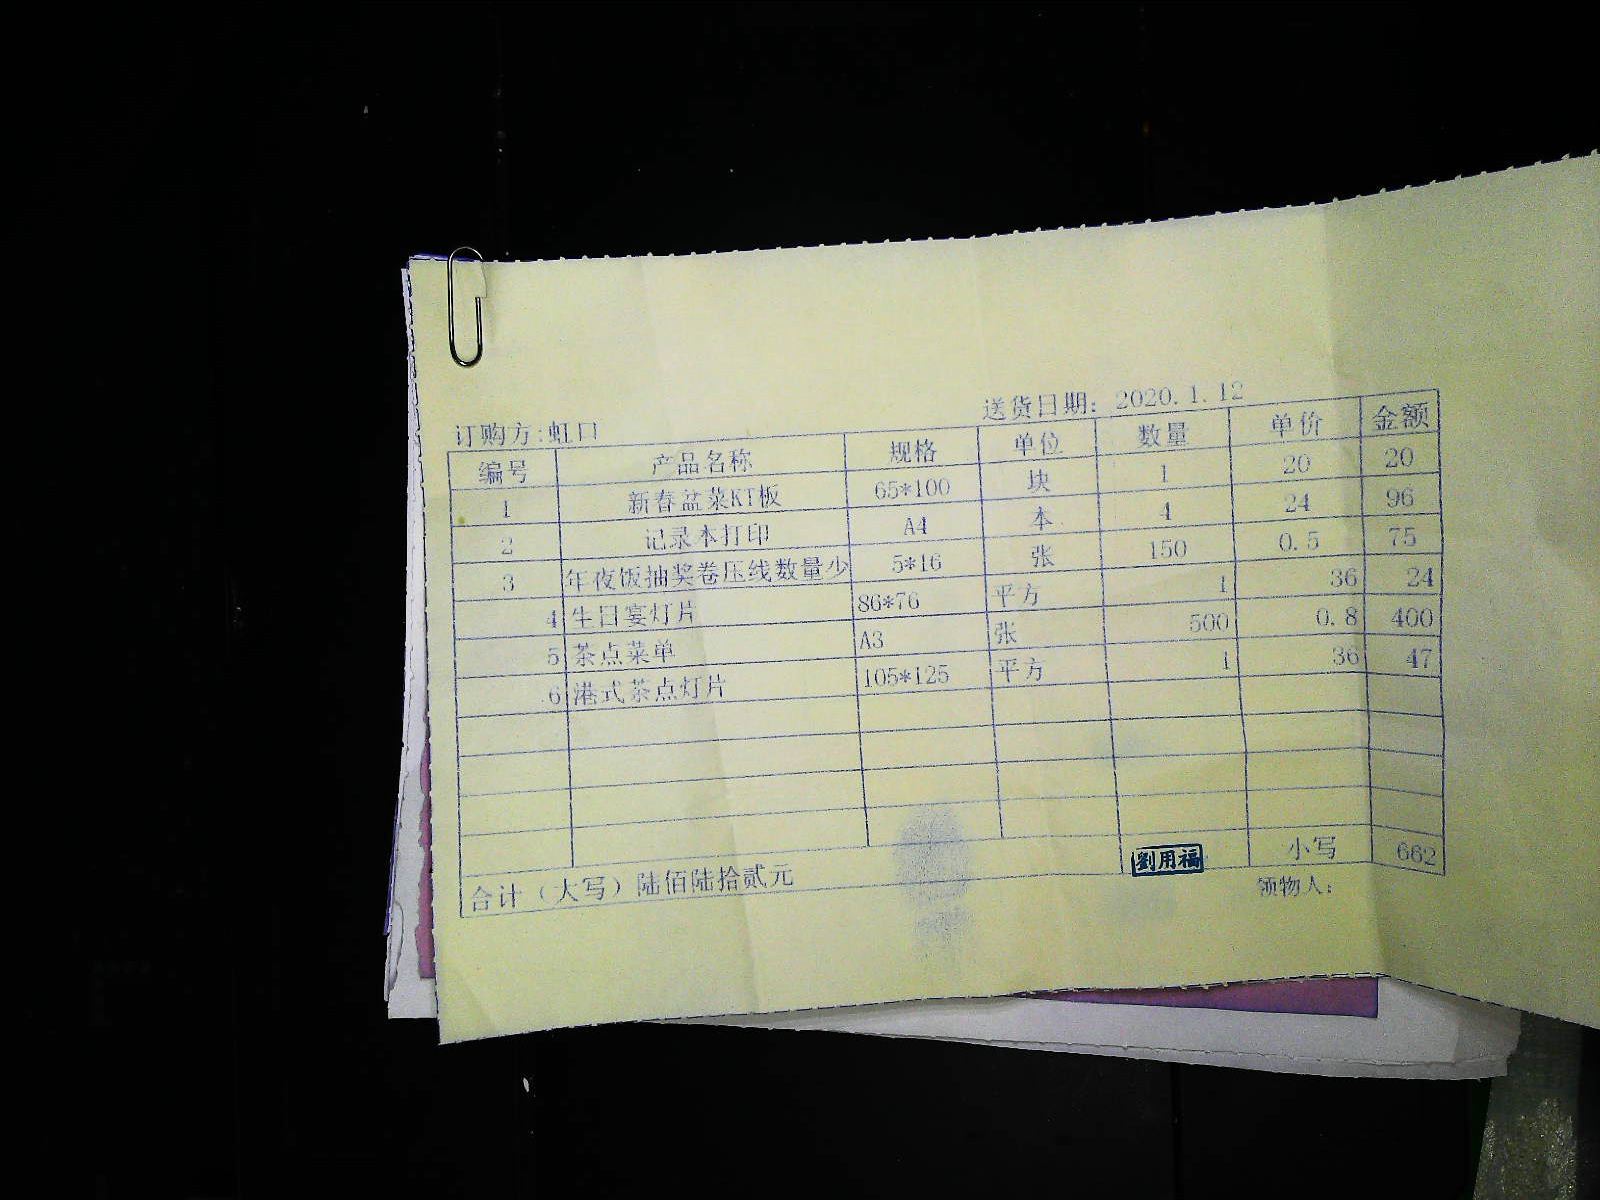 送货日期：2020.1.12
订购方:虹口
编号 产品名称 规格 单位 数量 单价 金额
1 新春盆菜KT板 65*100 块 1 20 20
2 记录本打印 A4 本 4 24 96
3 年夜饭抽奖卷压线数量少 5*16 张 150 0.5 75
4 生日宴灯片 86*76 平方 1 36 24
5 茶点菜单 A3 张 500 0.8 400
6 港式茶点灯片 105*125 平方 1 36 47
合计（大写）陆佰陆拾贰元 劉用福 小写 662
领物人：